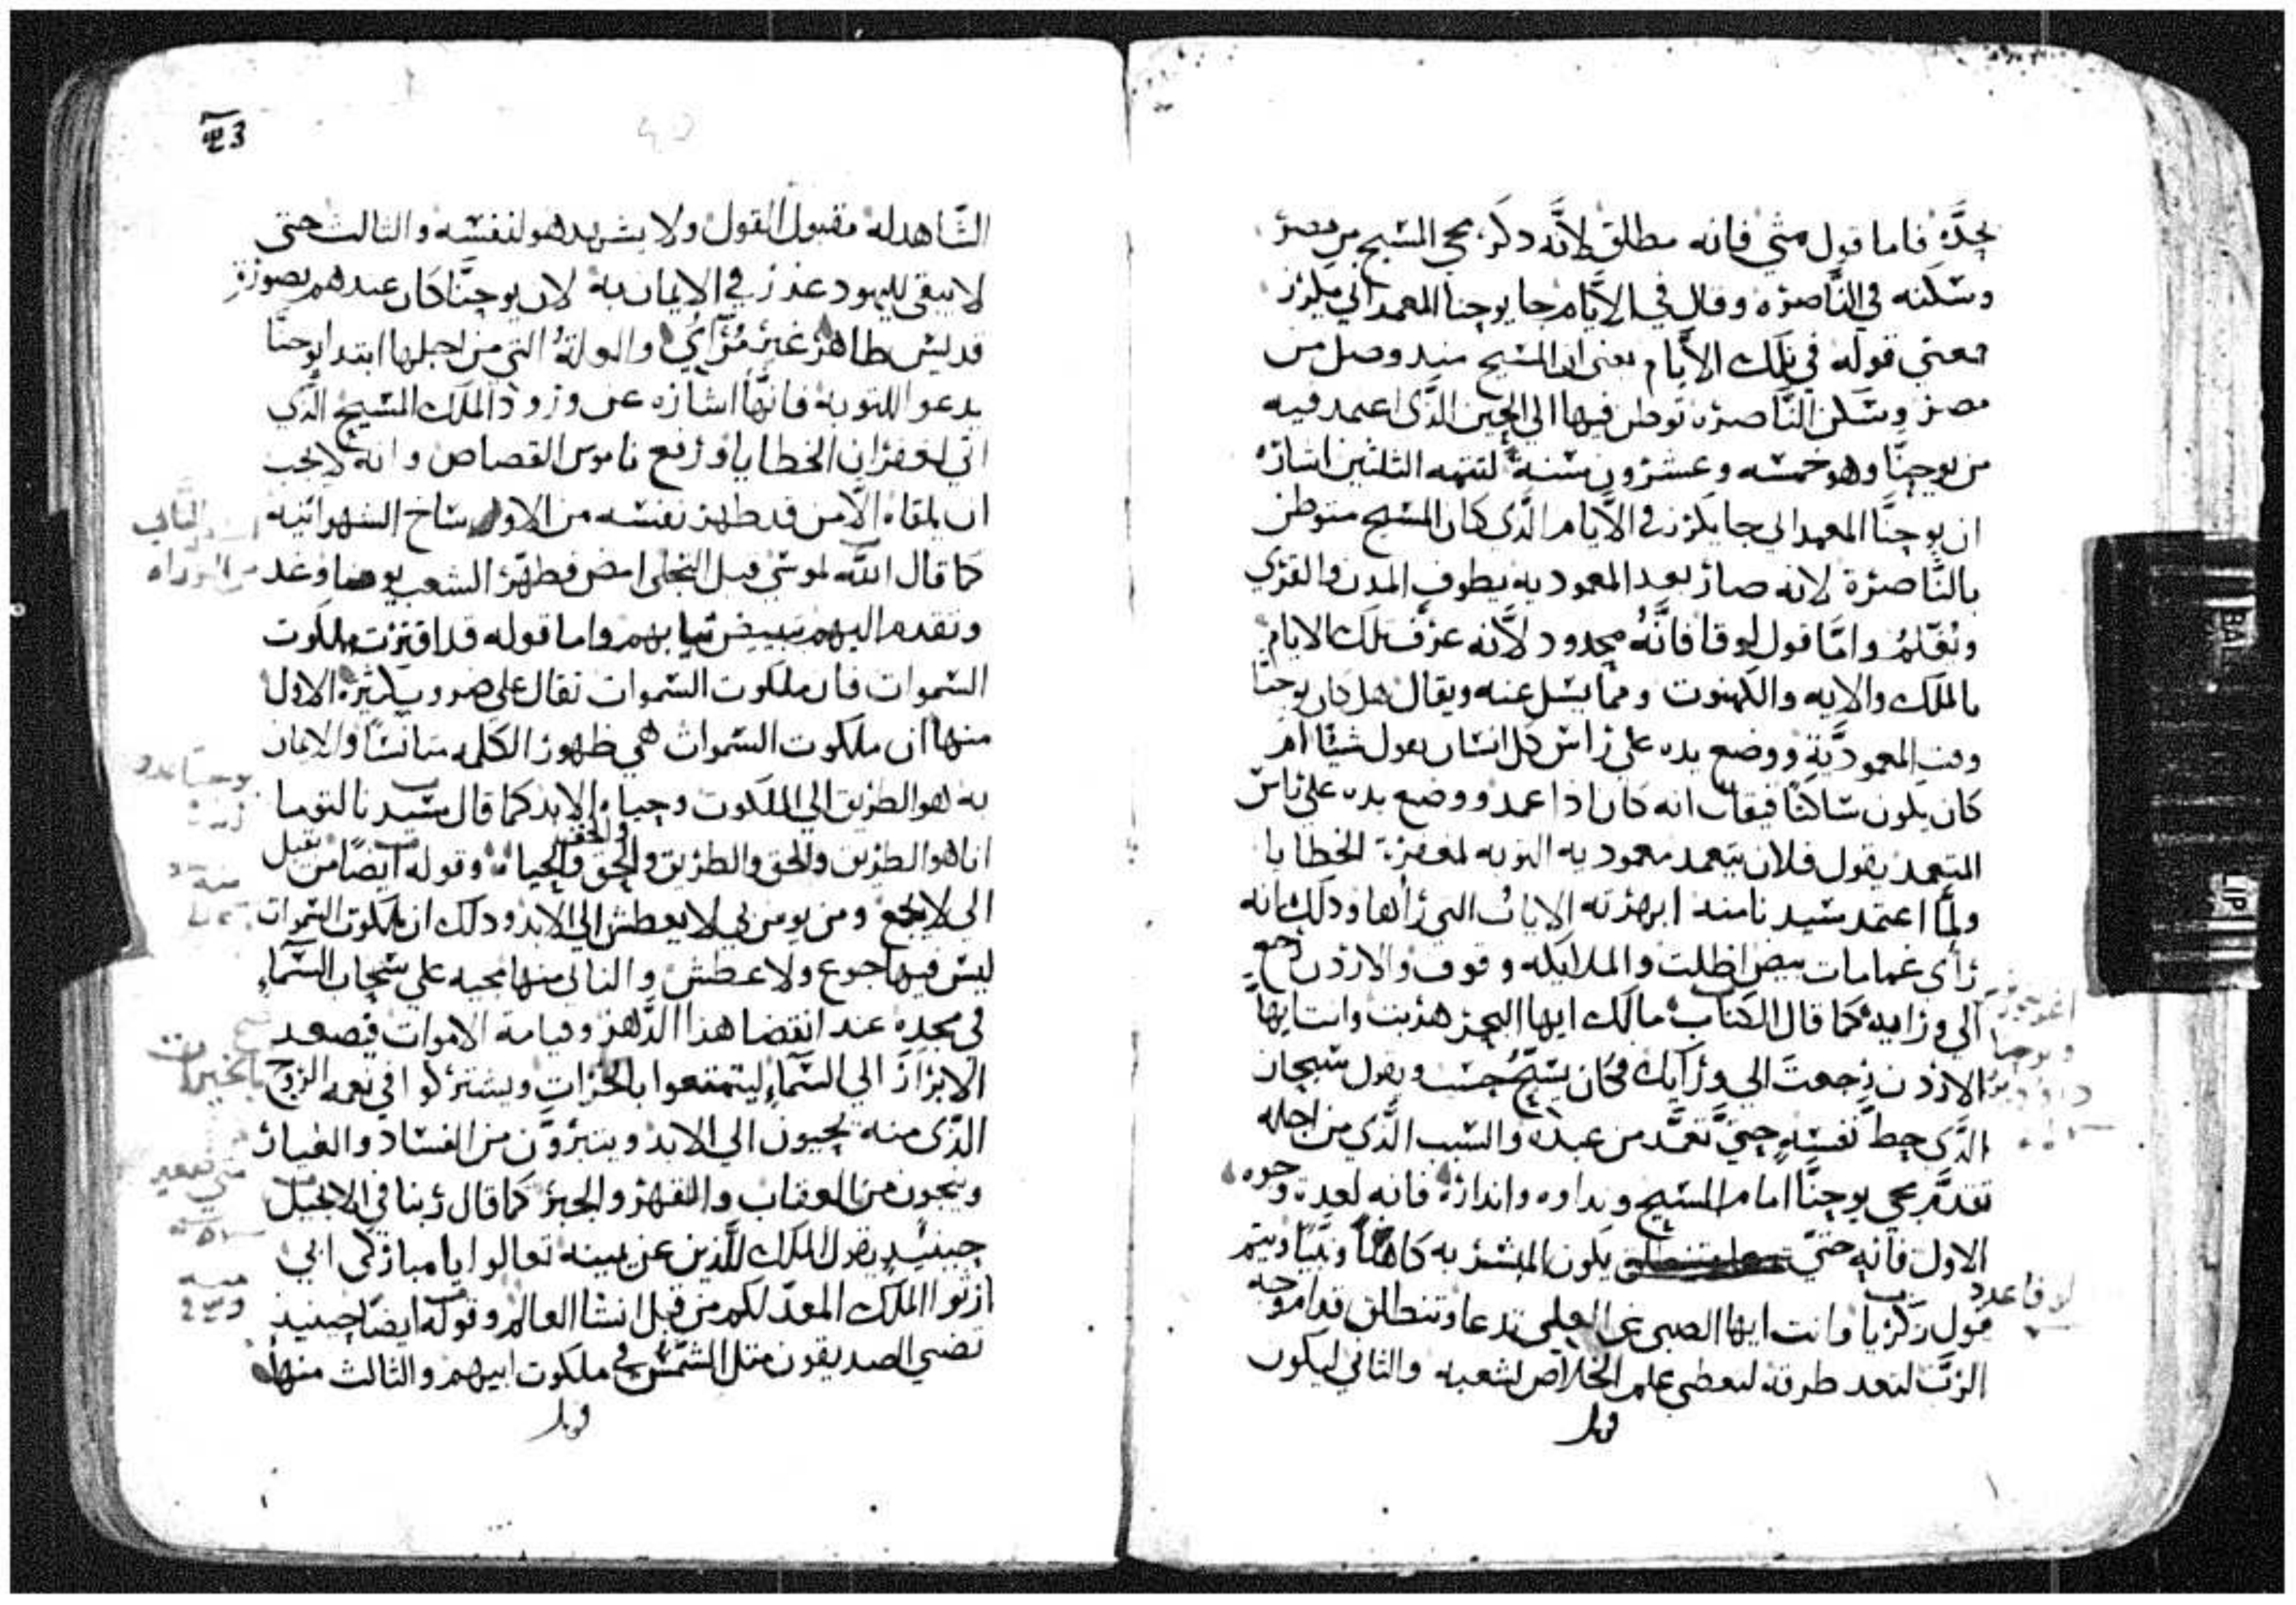 بحدَّه فاما قول متي فانه مطلق لانَّه ذكر مجي المسيح من مصر
وسكنه في الناصره وقال في الايَّام جا يوحنا المعمداني يكرز
فمعني قوله في تلك الايَّام يعني ان المسيح منيد وصل من
مصر وسكن النَّاصره توطن فيها الي الحين الَّذي اعتمد فيه
من يوحنَّا وهو خمسه وعشرون سنة لتتمه الثلثين اشاره
ان يوحنَّا المعمداني جا يكرز في الايَّام الَّذي كان المسيح متوطن
بالنَّاصرة لانه صار بعد المعموديه يطوف المدن والقري
ويُعَلمُ وامَّا قول لوقا فانَّهُ محدود لانَّه عرَّف تلك الايام
بالملك والايه والكهنوت ومما يسل عنه ويقال هل كان يوحنا
وقت المعموديَّةِ ووضع يده علي راس كل انسان يقول شيئًا ام
كان يكون ساكتًا فيقال انه كان اذا اعمد ووضع يده علي راس
المتعمد يقول فلان يتعمد معموديه التوبه لمغفرة الخطايا
ولمَّا اعتمد سيدنا منه ابهرته الايات التي رأها وذلك انه
رأي غمامات بيض اظلت والملايكه وقوف والاردن رجع
الي ورايه كما قال الكتاب مالك ايها البحر هربت وانت ايها
الاردن رجعت الي ورآيك فكان يسَبّحُ حسب ويقول سبحان
الَّذي حطَّ نفسه حتيَّ تعمَّد من عبده والسبب الَّذي من اجله
تقدَّم مجي يوحنَّا امام المسيح ونداوه وانداره فانه لعدة وجوه
الاول فانه حتيّ يكون المبشر به كاهنًا ونبيًا ويتم
قول زكريا وانت ايها الصبي نبي العلي تدعا وتنطلق قدام وجه
الربَّ لتعد طرقه لتعطي علم الخلاص لشعبه والثاني ليكون
لوقا عدد
الشَّاهد له مقبول القول ولا يشهد هو لنفسه والثالث حتي
لا يبقي لليهود عذر في الايمان به لان يوحنَّا كان عندهم بصورة
قديس طاهر غير مُرَآيُ والعلةُ التي من اجلها ابتدا يوحنَّا
يدعوا للتوبة فانَّها اشاره عن ورود الملك المسيح الَّذي
اتي لغفران الخطايا ورفع ناموس القصاص وانه لا يجب
ان يلقاه الَّا من قد طهر نفسه من الاوساخ الشهوانيه
كما قال الله لموسي قبل التجلي امض فطهّر الشعب يومنا وغد
وتقدم اليهم تبييض ثيابهم واما قوله قد اقتربت ملكوت
السموات فان ملكوت السموات تقال علي ضروب كثيره الاول
منها ان ملكوت السموات هي ظهور الكلمه متانسًا والايمان
به هو الطريق الي الملكوت وحياه الابد كما قال سيدنا لتوما
انا هو الطريق والحق والطريق والحق والحياه وقوله ايضًا من يقبل
الي لا يجوع ومن يومن بي لا يعطش الي الابد وذلك ان ملكوت السموات
ليس فيها جوع ولا عطش والثاني منها مجيه علي سحاب السَّماءِ
في مجده عند انقضا هذا الدَّهر وقيامة الاموات فيصعد
الابرار الي السَّماءِ ليتمتعوا بالخيرات ويشتركوا في نعمه الروح
الَّذي منه يحيون الي الابد ويتبروَّن من الفساد والغيار
وينجون من العقاب والقهر والجبر كما قال ربنا في الانجيل
حينيدٍ يقول الملك للَّذين عن يمينه تعالوا يا مباركي ابي
ارثوا الملك المعدّ لكم من قبل انشا العالم وقوله ايضًا حينيذ
تضي الصديقون مثل الشمس في ملكوت ابيهم والثالث منها